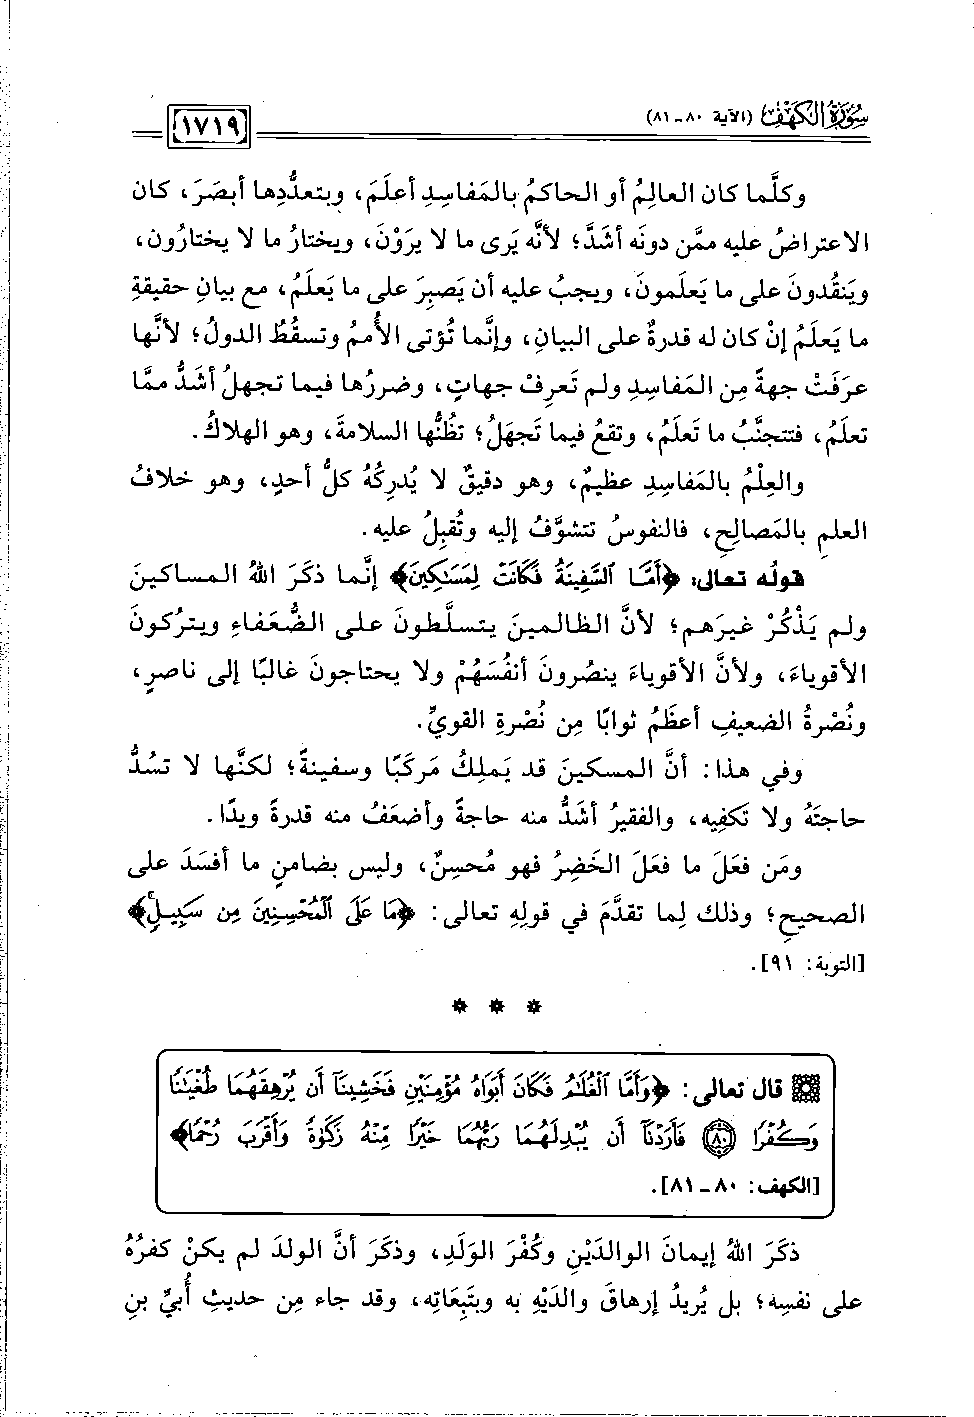 سُورَةُ الكَهْفِ (الآية ٨٠ ـ ٨١)
١٧١٩
وكلَّما كان العالِمُ أو الحاكمُ بالمَفاسِدِ أعلَمَ، وبتعدُّدِها أبصَرَ، كان
الاعتراضُ عليه ممَّن دونَه أشَدَّ؛ لأنَّه يَرى ما لا يرَوْنَ، ويختارُ ما لا يختارُون،
ويَنقُدونَ على ما يَعلَمونَ، ويجبُ عليه أن يَصبِرَ على ما يَعلَمُ، مع بيانِ حقيقةِ
ما يَعلَمُ إنْ كان له قدرةٌ على البيانِ، وإنَّما تُؤتى الأُممُ وتسقُطُ الدولُ؛ لأنَّها
عرَفَتْ جهةً مِن المَفاسِدِ ولم تَعرِفْ جهاتٍ، وضررُها فيما تجهلُ أشَدُّ ممَّا
تعلَمُ، فتتجنَّبُ ما تَعلَمُ، وتقعُ فيما تَجهَلُ؛ تظُنُّها السلامةَ، وهو الهلاكُ.
والعِلْمُ بالمَفاسِدِ عظيمٌ، وهو دقيقٌ لا يُدرِكُهُ كلُّ أحدٍ، وهو خلافُ
العلمِ بالمَصالِحِ، فالنفوسُ تتشوَّفُ إليه وتُقبِلُ عليه.
قولُه تعالى: ﴿أَمَّا ٱلسَّفِينَةُ فَكَانَتْ لِمَسَـٰكِينَ﴾ إنَّما ذكَرَ اللهُ المساكينَ
ولم يَذْكُرْ غيرَهم؛ لأنَّ الظالمينَ يتسلَّطونَ على الضُّعَفاءِ ويترُكونَ
الأقوياءَ، ولأنَّ الأقوياءَ ينصُرونَ أنفُسَهُمْ ولا يحتاجونَ غالبًا إلى ناصرٍ،
ونُصْرةُ الضعيفِ أعظَمُ ثوابًا مِن نُصْرةِ القويِّ.
وفي هذا: أنَّ المسكينَ قد يَملِكُ مَركَبًا وسفينةً؛ لكنَّها لا تسُدُّ
حاجتَهُ ولا تَكفِيه، والفقيرُ أشَدُّ منه حاجةً وأضعَفُ منه قدرةً ويدًا.
ومَن فعَلَ ما فعَلَ الخَضِرُ فهو مُحسِنٌ، وليس بضامنٍ ما أفسَدَ على
الصحيحِ؛ وذلك لِما تقدَّمَ في قولِهِ تعالى: ﴿مَا عَلَى ٱلْمُحْسِنِينَ مِن سَبِيلٍ﴾
[التوبة: ٩١].
* * *
قال تعالى: ﴿وَأَمَّا ٱلْغُلَـٰمُ فَكَانَ أَبَوَاهُ مُؤْمِنَيْنِ فَخَشِينَآ أَن يُرْهِقَهُمَا طُغْيَـٰنًا
وَكُفْرًا ﴿٨٠﴾ فَأَرَدْنَآ أَن يُبْدِلَهُمَا رَبُّهُمَا خَيْرًا مِّنْهُ زَكَوٰةً وَأَقْرَبَ رُحْمًا﴾
[الكهف: ٨٠ ـ ٨١].
ذكَرَ اللهُ إيمانَ الوالدَيْنِ وكُفْرَ الوَلَدِ، وذكَرَ أنَّ الولدَ لم يكنْ كفرُهُ
على نفسِهِ؛ بل يُريدُ إرهاقَ والدَيْهِ به وبتَبِعَاتِه، وقد جاء مِن حديثِ أُبيِّ بنِ